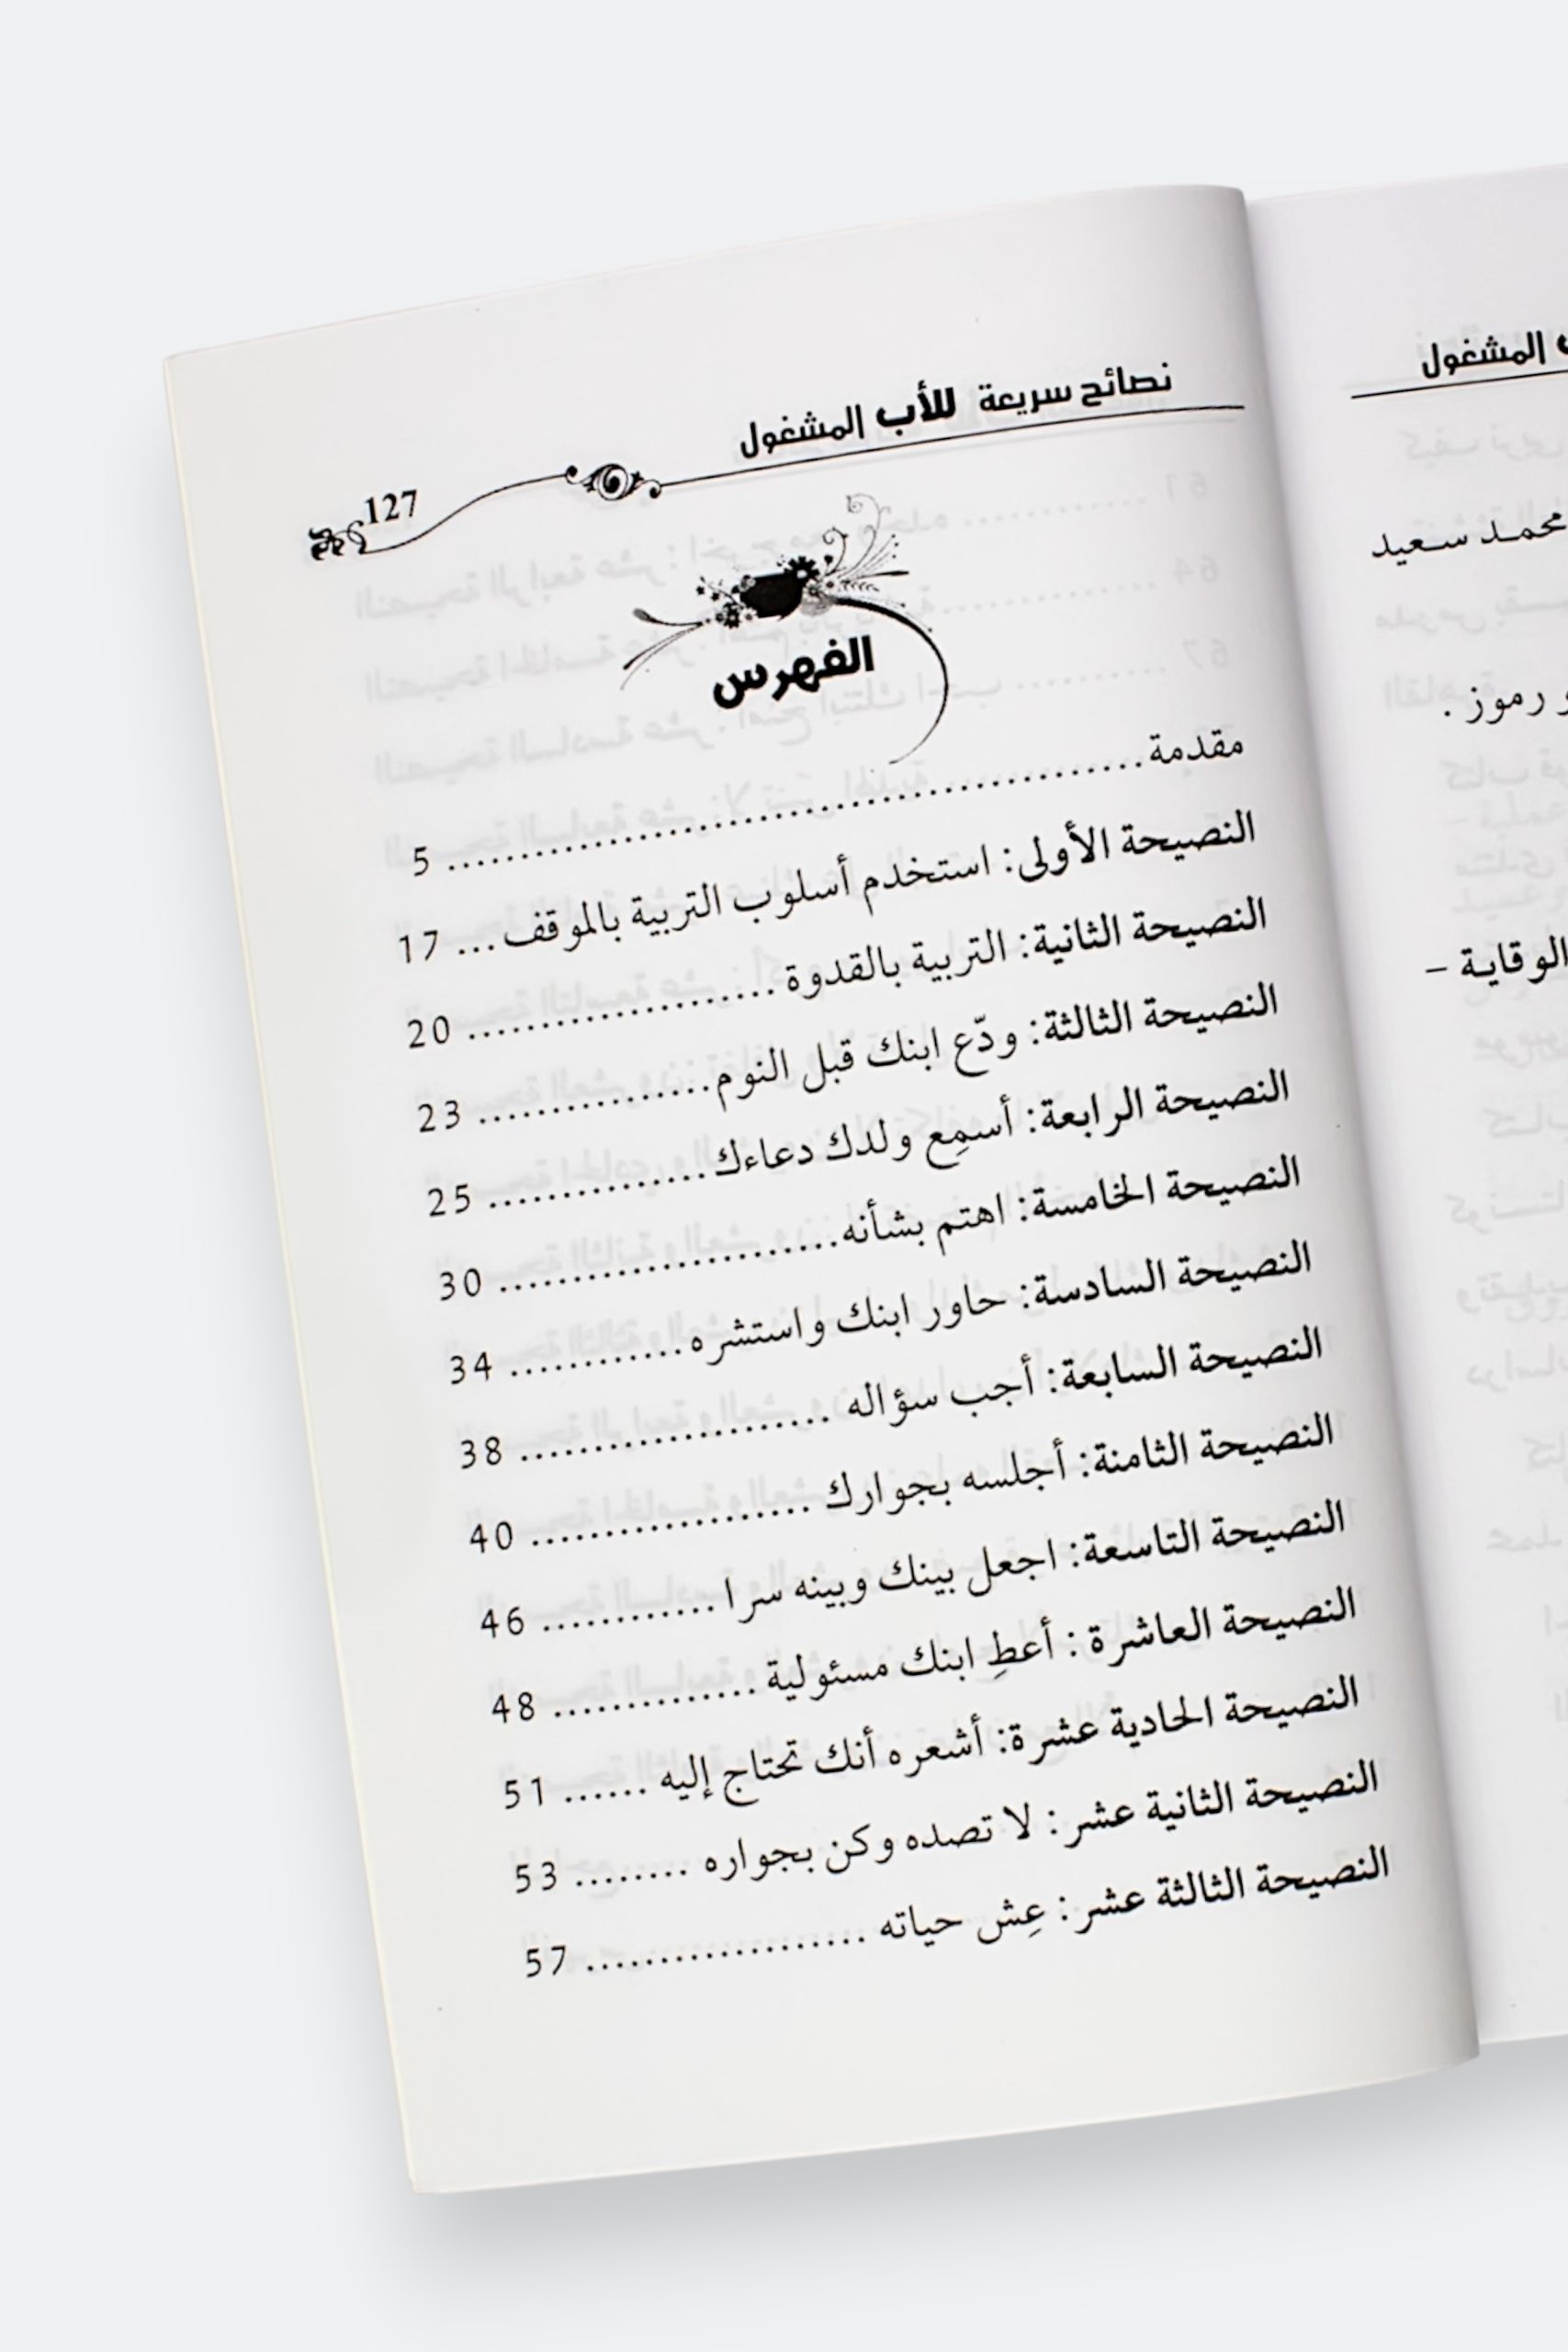 نصائح سريعة للأب المشغول
127
الفهرس
مقدمة ........................................ 5
النصيحة الأولى: استخدم أسلوب التربية بالموقف ... 17
النصيحة الثانية: التربية بالقدوة ..................... 20
النصيحة الثالثة: ودّع ابنك قبل النوم ................ 23
النصيحة الرابعة: أسمِع ولدك دعاءك ............... 25
النصيحة الخامسة: اهتم بشأنه ....................... 30
النصيحة السادسة: حاور ابنك واستشره ............ 34
النصيحة السابعة: أجب سؤاله ..................... 38
النصيحة الثامنة: أجلسه بجوارك ................... 40
النصيحة التاسعة: اجعل بينك وبينه سرا ............ 46
النصيحة العاشرة : أعطِ ابنك مسئولية .............. 48
النصيحة الحادية عشرة: أشعره أنك تحتاج إليه ...... 51
النصيحة الثانية عشر: لا تصده وكن بجواره ........ 53
النصيحة الثالثة عشر: عِش حياته ................... 57
المشغول
محمد سعيد
و رموز .
الوقاية –